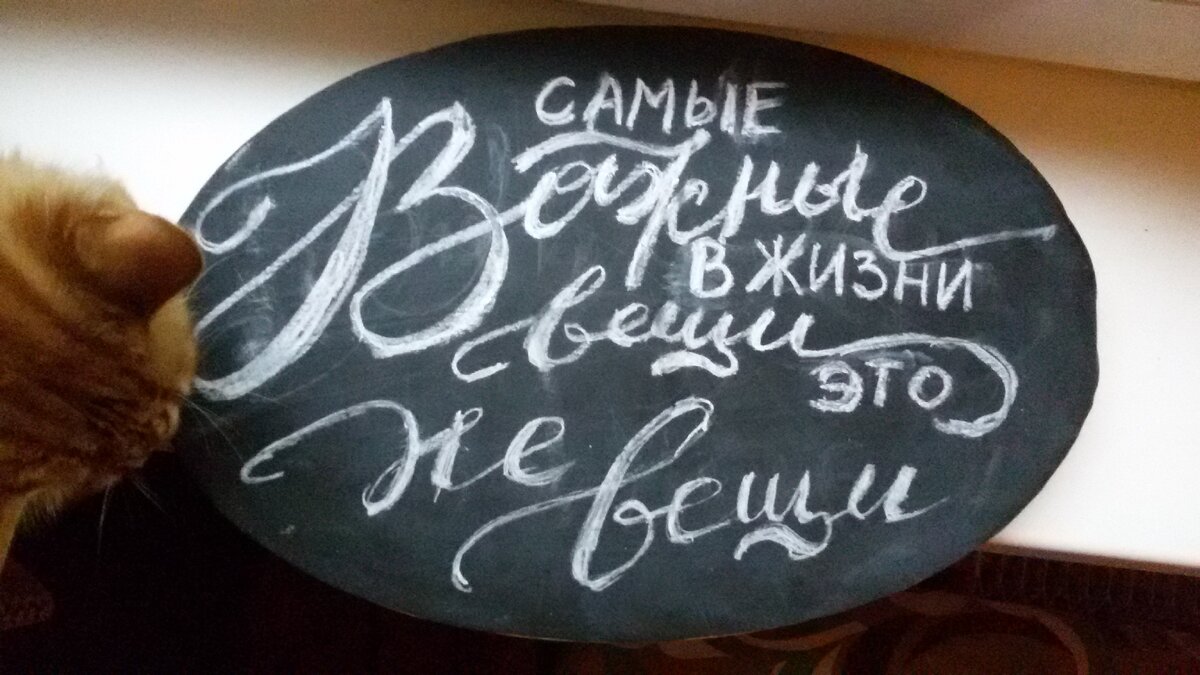 САМЫЕ
Важные
В ЖИЗНИ
вещи
ЭТО
не вещи